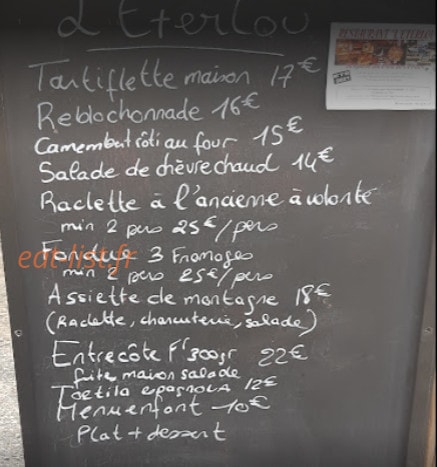 L'Eterlou
RESTAURANT L'ETERLOU
Tartiflette maison 17€
Reblochonnade 16€
Camembert rôti au four 15€
Salade de chèvre chaud 14€
Raclette à l'ancienne à volonté
min 2 pers 25€/pers
Fondue 3 Fromages
eat-list.fr
min 2 pers 25€/pers
Assiette de montagne 18€
(Raclette, charcuterie, salade)
Entrecôte F 300gr 22€
frite maison salade
Tortila espagnola 12€
Menu enfant 10€
Plat + dessert